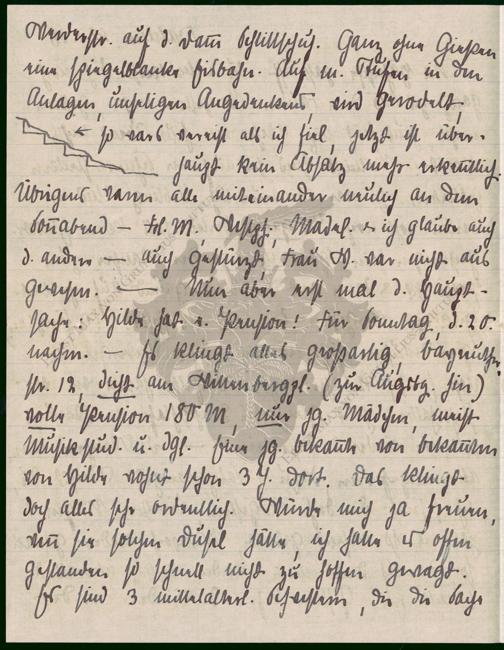 Werderstr. auf d. Dam̄ Schlittschuh. Ganz ohne Gießen
eine spiegelblanke Eisbahn. Auf m. Treppen in den
Anlagen, unseligen Angedenkens, wird gerodelt,
← so wars vereist als ich fiel, jetzt ist über-
haupt kein Absatz mehr erkenntlich.
Übrigens waren alle miteinander neulich an dem
Son̄abend — Frl. M., Mädel. u. ich glaube auch
d. andere — auch gestürzt, Frau W. war nicht aus
gewesen. — Nun aber erst mal d. Haupt-
sache: Hilde hat e. Pension! Für Sonntag, d. 20.
nachm. — Es klingt alles großartig, Bayreuther-
str. 12, dicht am Wittenbergpl. (zur Augsbg. hin)
volle Pension 180 M, nur jg. Mädchen, meist
Musikstud. u. dgl. Eine jg. Bekan̄te von Bekan̄ten
von Hilde wohnt schon 3 J. dort. Das klingt
doch alles sehr ordentlich. Würde mich ja freuen,
wen̄ sie solchen Dusel hätte, ich hatte es offen
gestanden so schnell nicht zu hoffen gewagt.
Es sind 3 mittelalterl. Schwestern, die die Sache